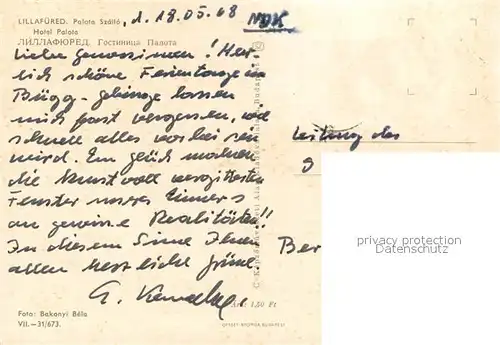 LILLAFÜRED. Palota Szálló
Hotel Palota
ЛИЛЛАФЮРЕД. Гостиница Палота
d. 18.05.68
NDK
Liebe Genossinnen! Herz
lich schöne Ferientage im
Bügg-gebirge lassen
mich fast vergessen, wie
schnell alles vorbei sein
wird. Ein Glück
die kunstvoll vergitterten
Fenster unseres Zimmers
an gewisse Realitäten!!
In diesem Sinne Ihnen
allen herzliche Grüße
Leitung des
Ber
privacy protection
Datenschutz
Ára: 1,50 Ft
Foto: Bakonyi Béla
VII.–31/673.